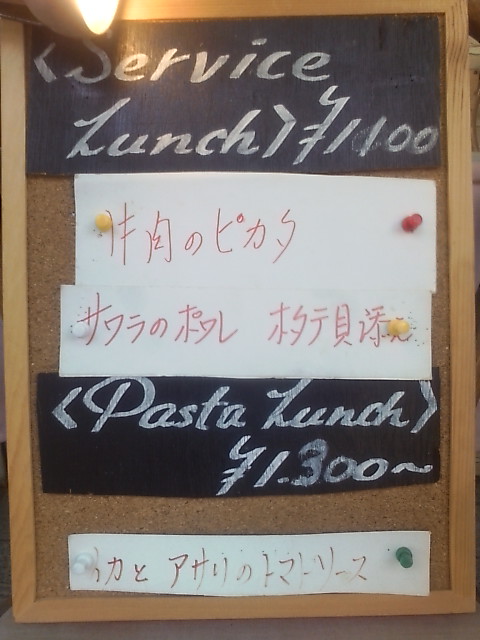 <Service
Lunch> ¥1,100
牛肉のピカタ
サワラのポワレ ホタテ貝添え
<Pasta Lunch>
¥1.300~
イカと アサリのトマトソース